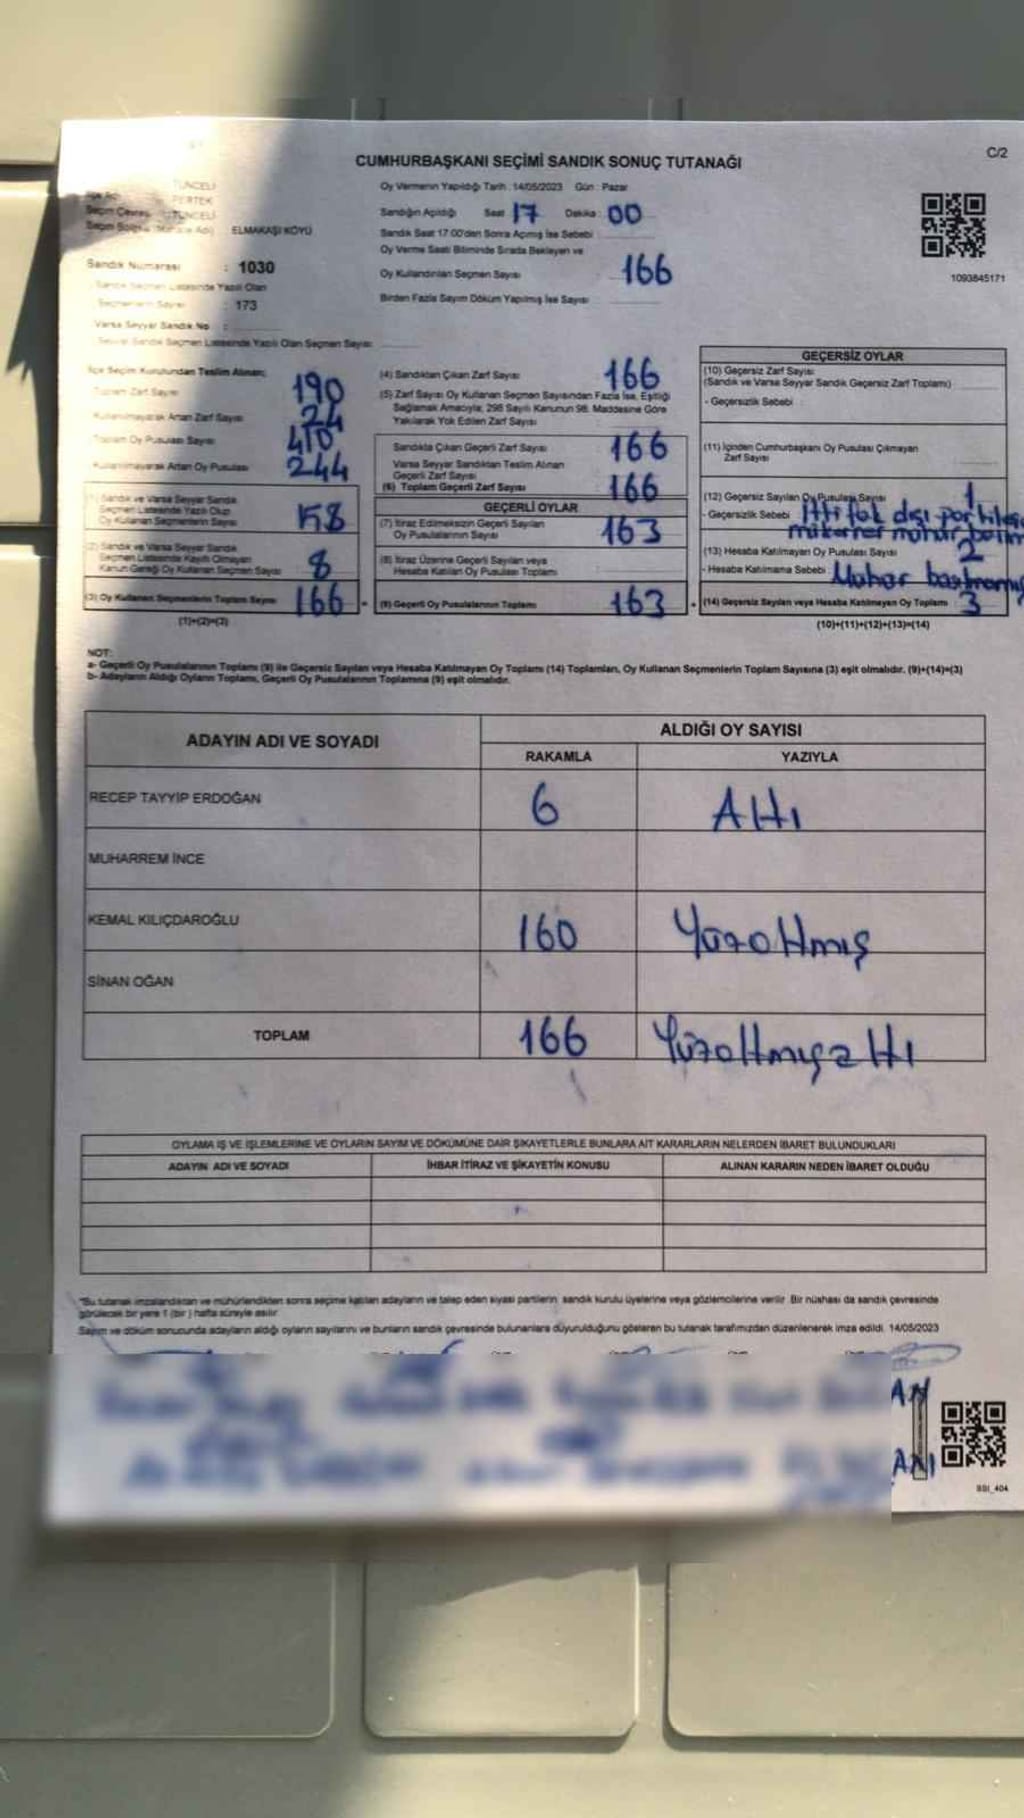 C/2
CUMHURBAŞKANI SEÇİMİ SANDIK SONUÇ TUTANAĞI
TUNCELİ
PERTEK
TUNCELİ
ELMAKAŞI KÖYÜ
Sandık Numarası : 1030
Sandık Seçmen Listesinde Yazılı Olan
Seçmenlerin Sayısı : 173
Varsa Seyyar Sandık No :
Seyyar Sandık Seçmen Listesinde Yazılı Olan Seçmen Sayısı
Oy Vermenin Yapıldığı Tarih : 14/05/2023 Gün : Pazar
Sandığın Açıldığı Saat 17 Dakika : 00
Sandık Saat 17.00'den Sonra Açılmış İse Sebebi :
Oy Verme Saati Bitiminde Sırada Bekleyen ve
Oy Kullandırılan Seçmen Sayısı 166
Birden Fazla Sayım Döküm Yapılmış İse Sayısı
1093845171
İlçe Seçim Kurulundan Teslim Alınan;
Toplam Zarf Sayısı 190
Kullanılmayarak Artan Zarf Sayısı 24
Toplam Oy Pusulası Sayısı 410
Kullanılmayarak Artan Oy Pusulası 244
(1) Sandık ve Varsa Seyyar Sandık
Seçmen Listesinde Yazılı Olup
Oy Kullanan Seçmenlerin Sayısı 158
(2) Sandık ve Varsa Seyyar Sandık
Seçmen Listesinde Kayıtlı Olmayan
Kanun Gereği Oy Kullanan Seçmen Sayısı 8
(3) Oy Kullanan Seçmenlerin Toplam Sayısı 166 =
(1)+(2)=(3)
(4) Sandıktan Çıkan Zarf Sayısı 166
(5) Zarf Sayısı Oy Kullanan Seçmen Sayısından Fazla İse, Eşitliği
Sağlamak Amacıyla; 298 Sayılı Kanunun 98. Maddesine Göre
Yakılarak Yok Edilen Zarf Sayısı :
Sandıkta Çıkan Geçerli Zarf Sayısı 166
Varsa Seyyar Sandıktan Teslim Alınan
Geçerli Zarf Sayısı
(6) Toplam Geçerli Zarf Sayısı 166
GEÇERLİ OYLAR
(7) İtiraz Edilmeksizin Geçerli Sayılan
Oy Pusulalarının Sayısı 163
(8) İtiraz Üzerine Geçerli Sayılan veya
Hesaba Katılan Oy Pusulası Toplamı
(9) Geçerli Oy Pusulalarının Toplamı 163 +
GEÇERSİZ OYLAR
(10) Geçersiz Zarf Sayısı
(Sandık ve Varsa Seyyar Sandık Geçersiz Zarf Toplamı)
- Geçersizlik Sebebi :
(11) İçinden Cumhurbaşkanı Oy Pusulası Çıkmayan
Zarf Sayısı
(12) Geçersiz Sayılan Oy Pusulası Sayısı 1
- Geçersizlik Sebebi İttifak dışı
mükerrer mühür
(13) Hesaba Katılmayan Oy Pusulası Sayısı 2
- Hesaba Katılmama Sebebi Mühür
(14) Geçersiz Sayılan veya Hesaba Katılmayan Oy Toplamı 3
(10)+(11)+(12)+(13)=(14)
NOT:
a- Geçerli Oy Pusulalarının Toplamı (9) ile Geçersiz Sayılan veya Hesaba Katılmayan Oy Toplamı (14) Toplamları, Oy Kullanan Seçmenlerin Toplam Sayısına (3) eşit olmalıdır. (9)+(14)=(3)
b- Adayların Aldığı Oyların Toplamı, Geçerli Oy Pusulalarının Toplamına (9) eşit olmalıdır.
ADAYIN ADI VE SOYADI ALDIĞI OY SAYISI
RAKAMLA YAZIYLA
RECEP TAYYİP ERDOĞAN 6 Altı
MUHARREM İNCE
KEMAL KILIÇDAROĞLU 160 Yüzaltmış
SİNAN OĞAN
TOPLAM 166 Yüzaltmışaltı
OYLAMA İŞ VE İŞLEMLERİNE VE OYLARIN SAYIM VE DÖKÜMÜNE DAİR ŞİKAYETLERLE BUNLARA AİT KARARLARIN NELERDEN İBARET BULUNDUKLARI
ADAYIN ADI VE SOYADI İHBAR İTİRAZ VE ŞİKAYETİN KONUSU ALINAN KARARIN NEDEN İBARET OLDUĞU
*Bu tutanak imzalandıktan ve mühürlendikten sonra seçime katılan adayların ve talep eden siyasi partilerin, sandık kurulu üyelerine veya gözlemcilerine verilir. Bir nüshası da sandık çevresinde
görülecek bir yere 1 (bir ) hafta süreyle asılır.
Sayım ve döküm sonucunda adayların aldığı oyların sayılarını ve bunların sandık çevresinde bulunanlara duyurulduğunu gösteren bu tutanak tarafımızdan düzenlenerek imza edildi. 14/05/2023
SSI_404